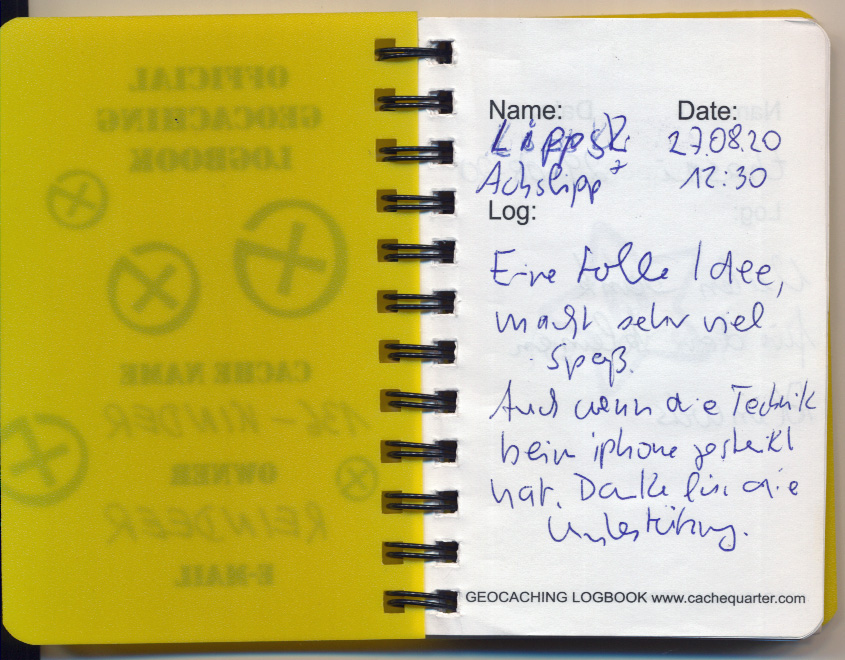 OFFICIAL
GEOCACHING
LOGBOOK
CACHE NAME
136-KINDER
OWNER
REINDEER
E-MAIL
Name: Date:
27.08.20
12:30
Log:
Eine tolle Idee,
macht sehr viel
Spaß.
Auch wenn die Technik
beim iphone gestreikt
hat. Danke für die
Unterstützung.
GEOCACHING LOGBOOK www.cachequarter.com